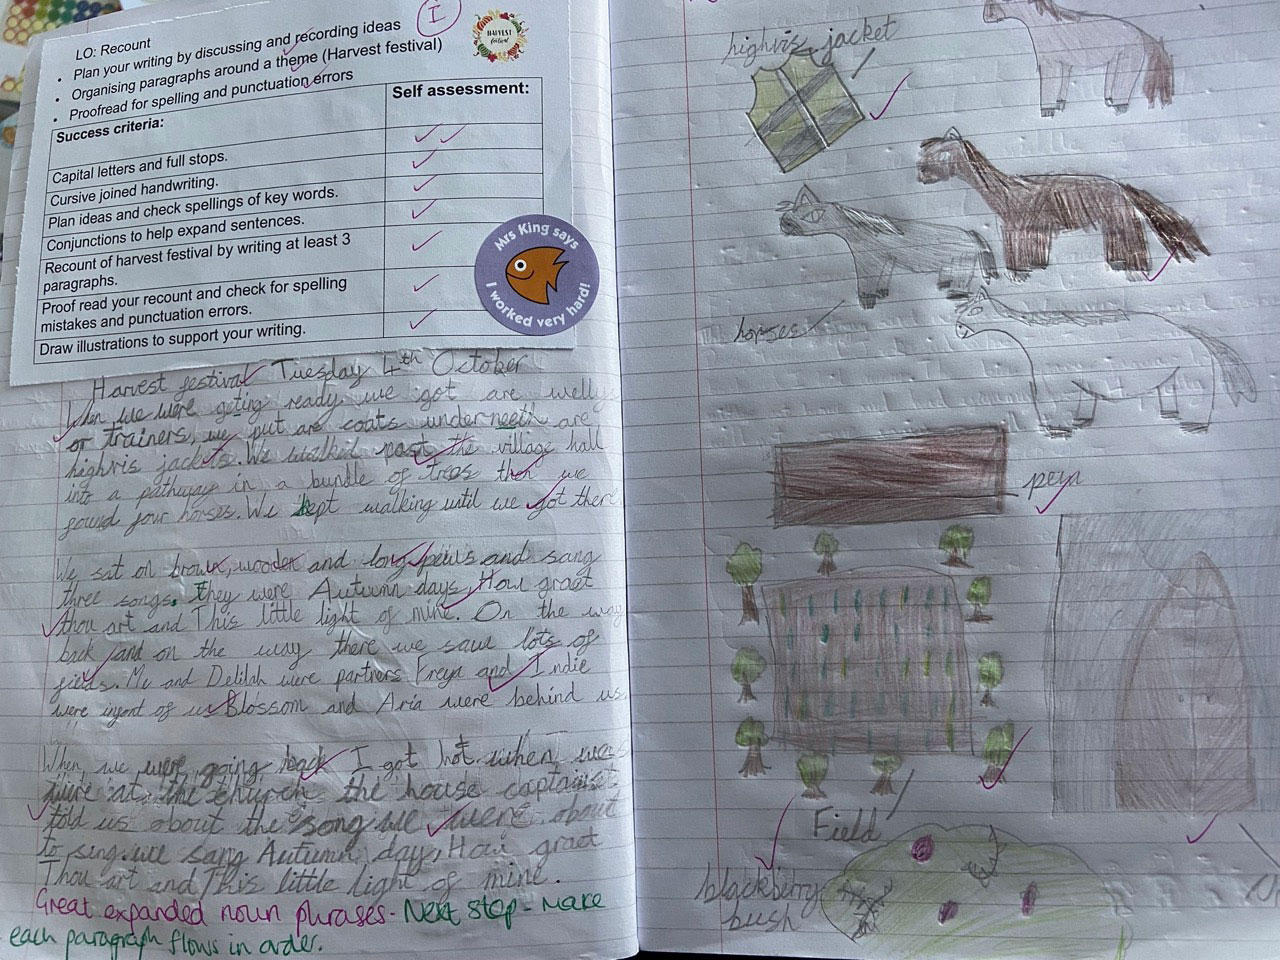 LO: Recount
• Plan your writing by discussing and recording ideas
• Organising paragraphs around a theme (Harvest festival)
• Proofread for spelling and punctuation errors
I
HARVEST
festival
Success criteria:
Self assessment:
Capital letters and full stops.
Cursive joined handwriting.
Plan ideas and check spellings of key words.
Conjunctions to help expand sentences.
Recount of harvest festival by writing at least 3
paragraphs.
Proof read your recount and check for spelling
mistakes and punctuation errors.
Draw illustrations to support your writing.
Mrs King says
I worked very hard!
Harvest festival Tuesday 4th October
When we were geting ready we got are wellys
or trainers, we put are coats underneeth are
highvis jackets. We walked past the village hall
into a pathway in a bundle of trees then we
found four horses. We kept walking until we got there.
We sat on brown, wooden and long pews and sang
three songs. they were Autumn days, How graet
thou art and This little light of mine. On the way
back and on the way there we saw lots of
fields. Me and Delilah were partners Freya and Indie
were infont of us Blossom and Aria were behind us.
When we were going back I got hot. when we
were at the church the house captains
told us about the song we were about
to sing. we sang Autumn day, How graet
Thou art and This little light of mine.
Great expanded noun phrases - Next step - Make
each paragraph flows in order.
highvis jacket
horses
pew
Field
blackberry
bush